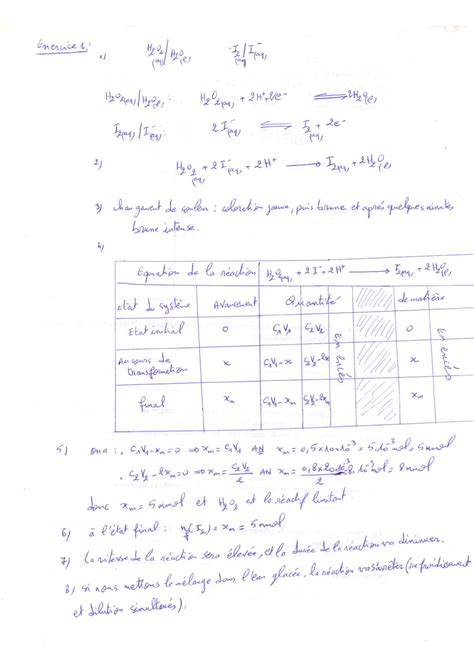 Exercice 1:
1) H2O2(aq)/H2O(l) I2(aq)/I-(aq)
H2O2(aq)/H2O(l): H2O2(aq) + 2H+ + 2e- ⇌ 2H2O(l)
I2(aq)/I-(aq): 2I-(aq) ⇌ I2(aq) + 2e-
2) H2O2(aq) + 2I-(aq) + 2H+ → I2(aq) + 2H2O(l)
3) changement de couleur : coloration jaune, puis brune et après quelques minutes
brune intense.
4)
Equation de la réaction H2O2(aq) + 2I- + 2H+ → I2(aq) + 2H2O(l)
etat du système Avancement Quantité de matière
Etat initial 0 C1V1 C2V2 en excés 0 en excés
Au cours de transformation x C1V1-x C2V2-2x x
final xm C1V1-xm C2V2-2xm xm
5) on a : . C1V1-xm=0 ⇒ xm=C1V1 AN xm=0,5×10×10^-3=5.10^-3 mol=5mmol
. C2V2-2xm=0 ⇒ xm=C2V2/2 AN xm=0,8×20.10^-3/2=8.10^-3 mol=8mmol
donc xm=5mmol et H2O2 est le réactif limitant.
6) à l'état final : nf(I2)=xm=5mmol
7) La vitesse de la réaction sera élevée, et la durée de la réaction va diminuer.
8) si nous mettons le mélange dans l'eau glacée, la réaction va s'arrêter (refroidissement
et dilution simultanés).